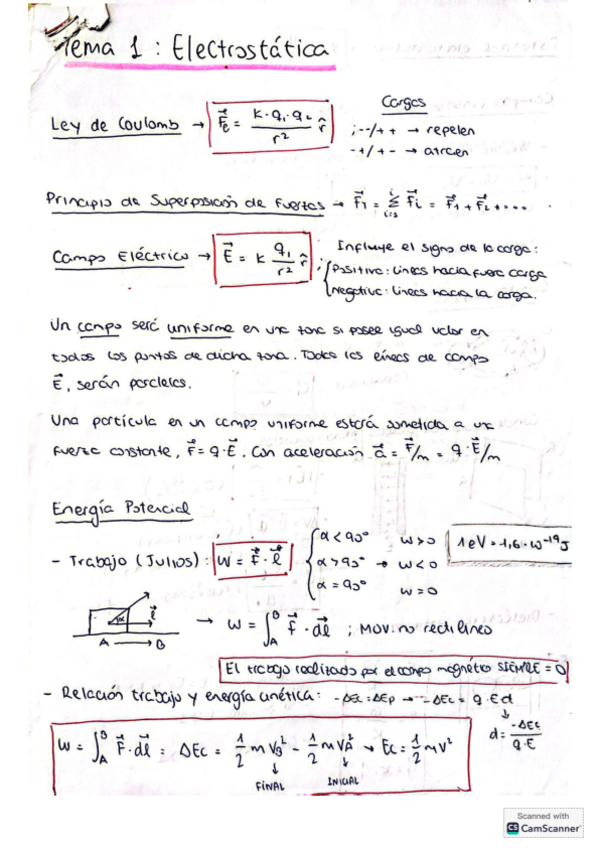 Tema 1 : Electrostática
Ley de Coulomb → F⃗e = K·q₁·q₂ / r² r̂
Cargas
; --/++ → repelen
-+/+- → atraen
Principio de Superposición de Fuerzas → F⃗₁ = Σ F⃗i = F⃗₁ + F⃗₂ + ....
Campo Eléctrico → E⃗ = K q₁ / r² r̂
Influye el signo de la carga:
; Positiva: líneas hacia fuera carga
Negativa: líneas hacia la carga.
Un campo será uniforme en una zona si posee igual valor en
todos los puntos de dicha zona. Todas las líneas de campo
E⃗, serán paralelas.
Una partícula en un campo uniforme estará sometida a una
fuerza constante, F⃗ = q·E⃗. Con aceleración a⃗ = F⃗/m = q·E⃗/m
Energía Potencial
- Trabajo (Julios): W = F⃗·l⃗
α < 90º W > 0
α > 90º → W < 0
α = 90º W = 0
1eV = 1,6·10⁻¹⁹J
α l⃗
A → B
→ W = ∫_A^B F⃗·dl⃗ ; Mov. no rectilíneo
El trabajo realizado por el campo magnético SIEMPRE = 0
- Relación trabajo y energía cinética: -ΔEc = ΔEp → -ΔEc = q·E·d
d = -ΔEc / q·E
W = ∫_A^B F⃗·dl⃗ = ΔEc = 1/2 m V_B² - 1/2 m V_A² → Ec = 1/2 m V²
↓ FINAL ↓ INICIAL
Scanned with
CS CamScanner